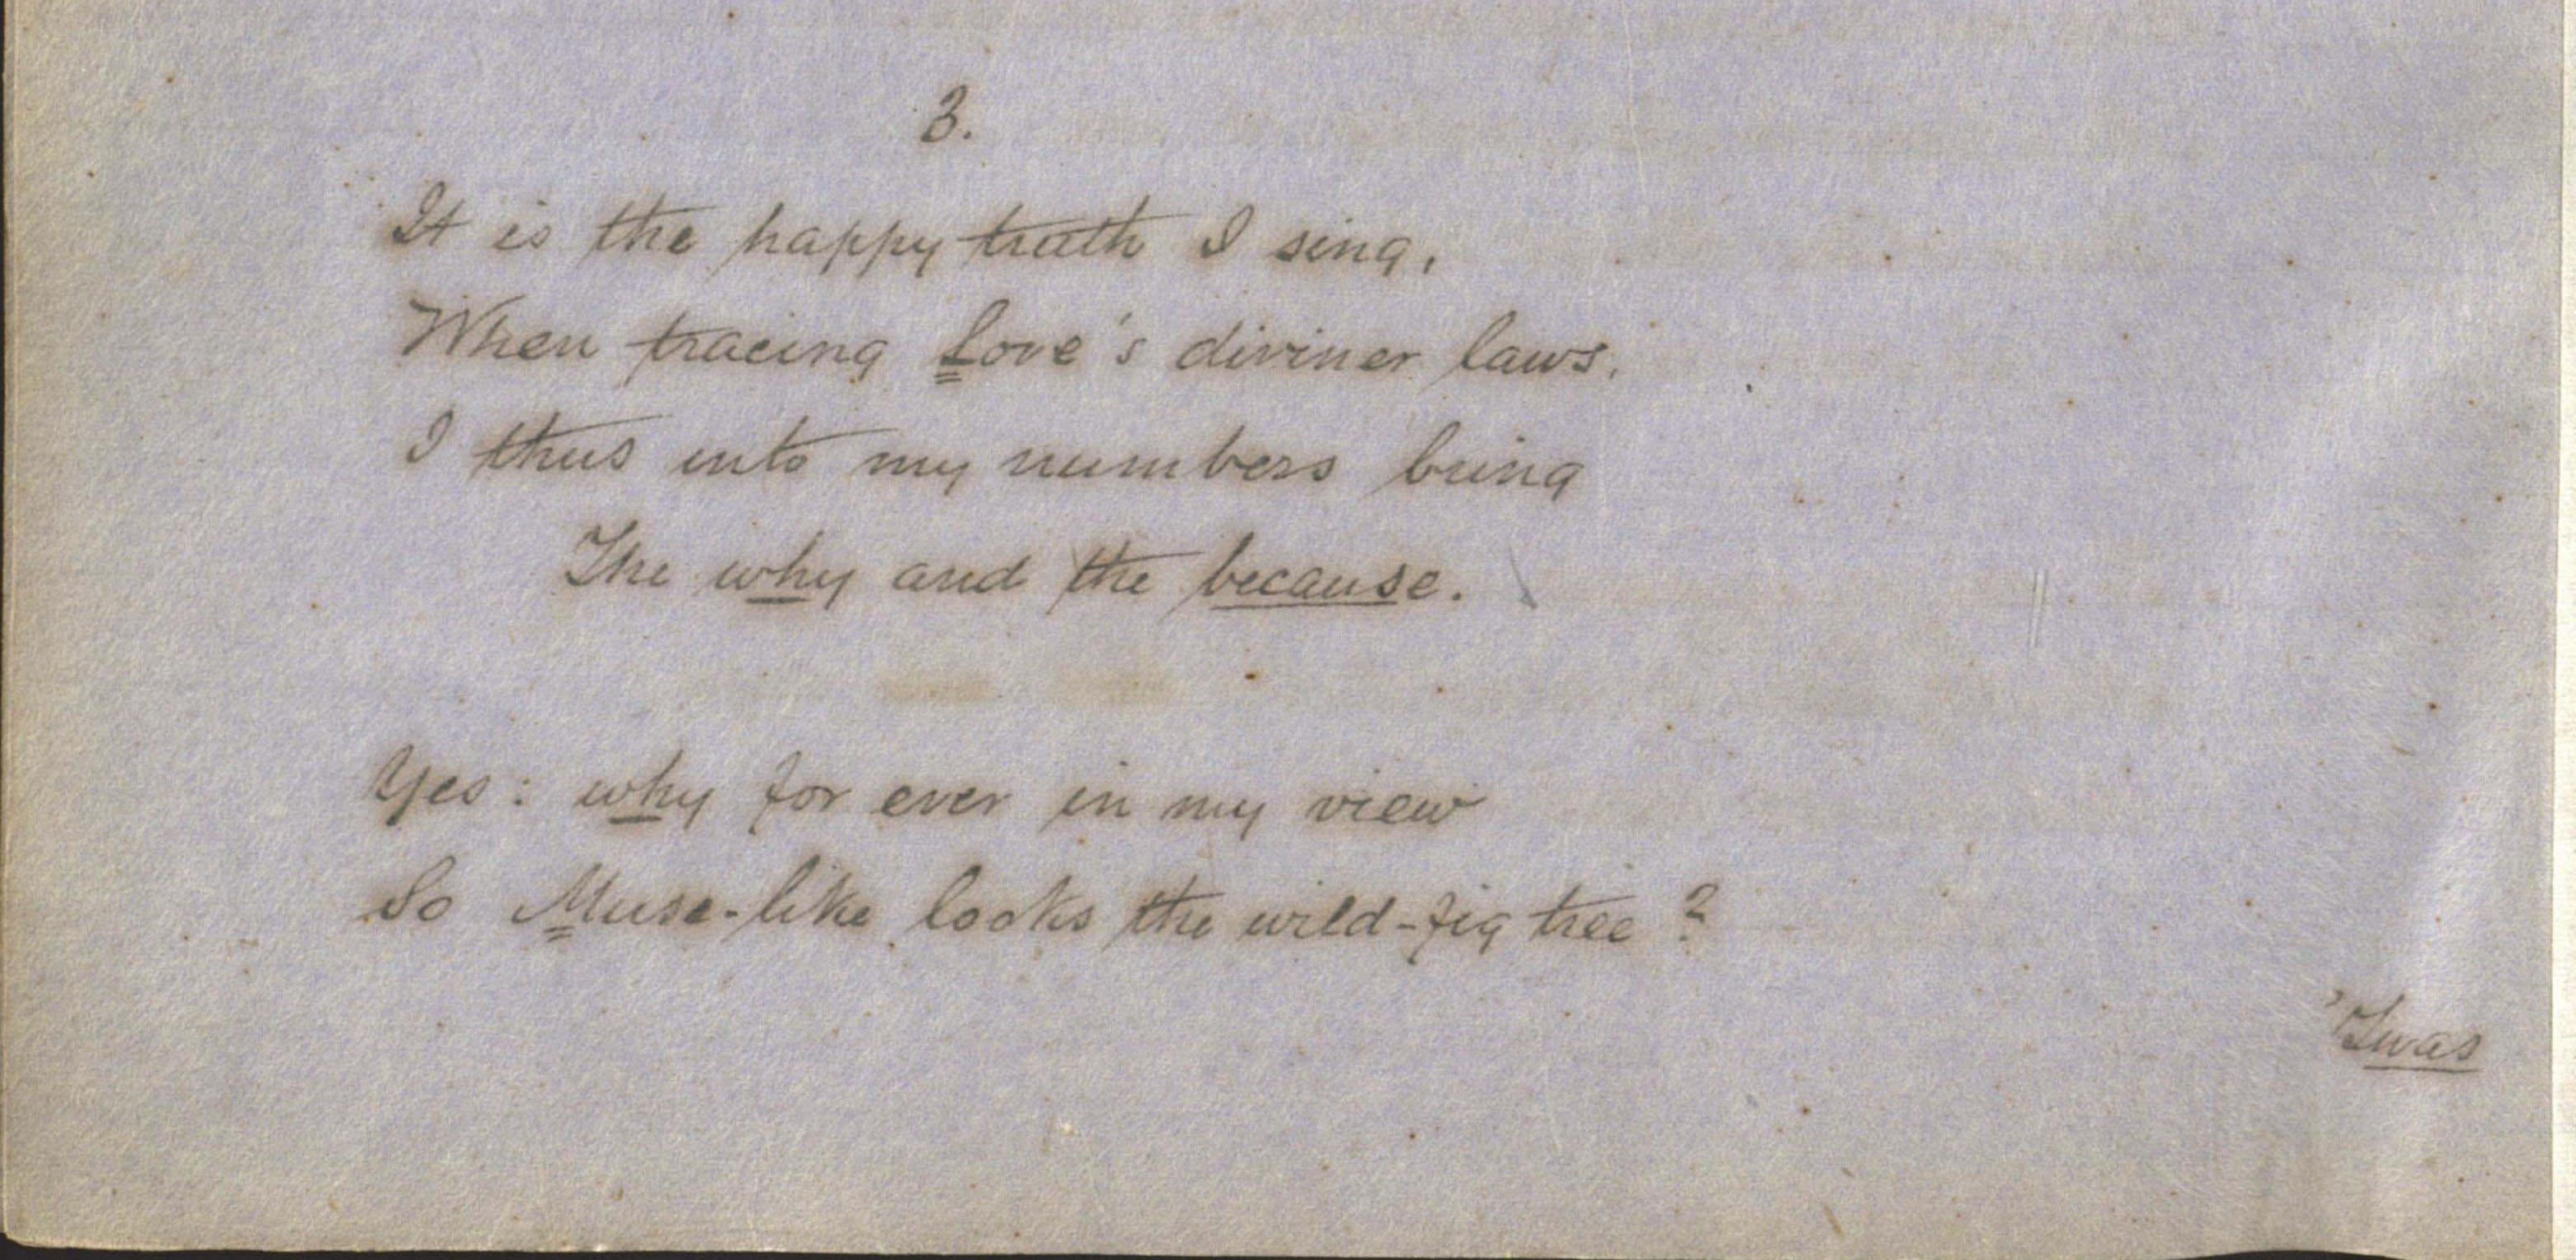 3.
It is the happy truth I sing,
When tracing Love's diviner laws,
I thus into my numbers bring
The why and the because.
Yes: why for ever in my view
So Muse-like looks the wild-fig tree?
'Twas